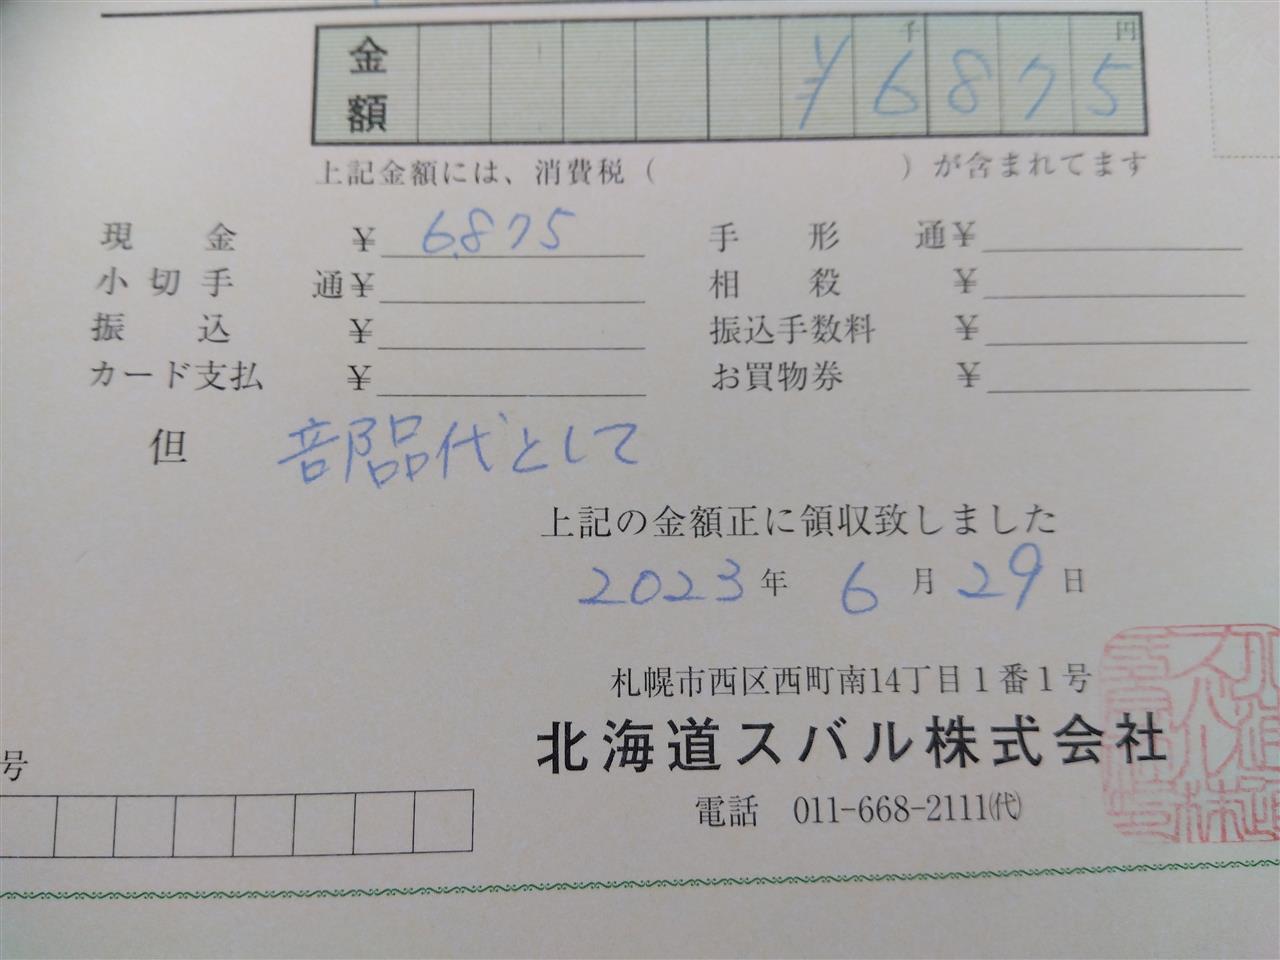 金額 千 円
¥6875
上記金額には、消費税（ ）が含まれてます
現金 ¥ 6,875 手形 通¥
小切手 通¥ 相殺 ¥
振込 ¥ 振込手数料 ¥
カード支払 ¥ お買物券 ¥
但 部品代として
上記の金額正に領収致しました
2023年 6月 29日
札幌市西区西町南14丁目1番1号
北海道スバル株式会社
号
電話 011-668-2111㈹